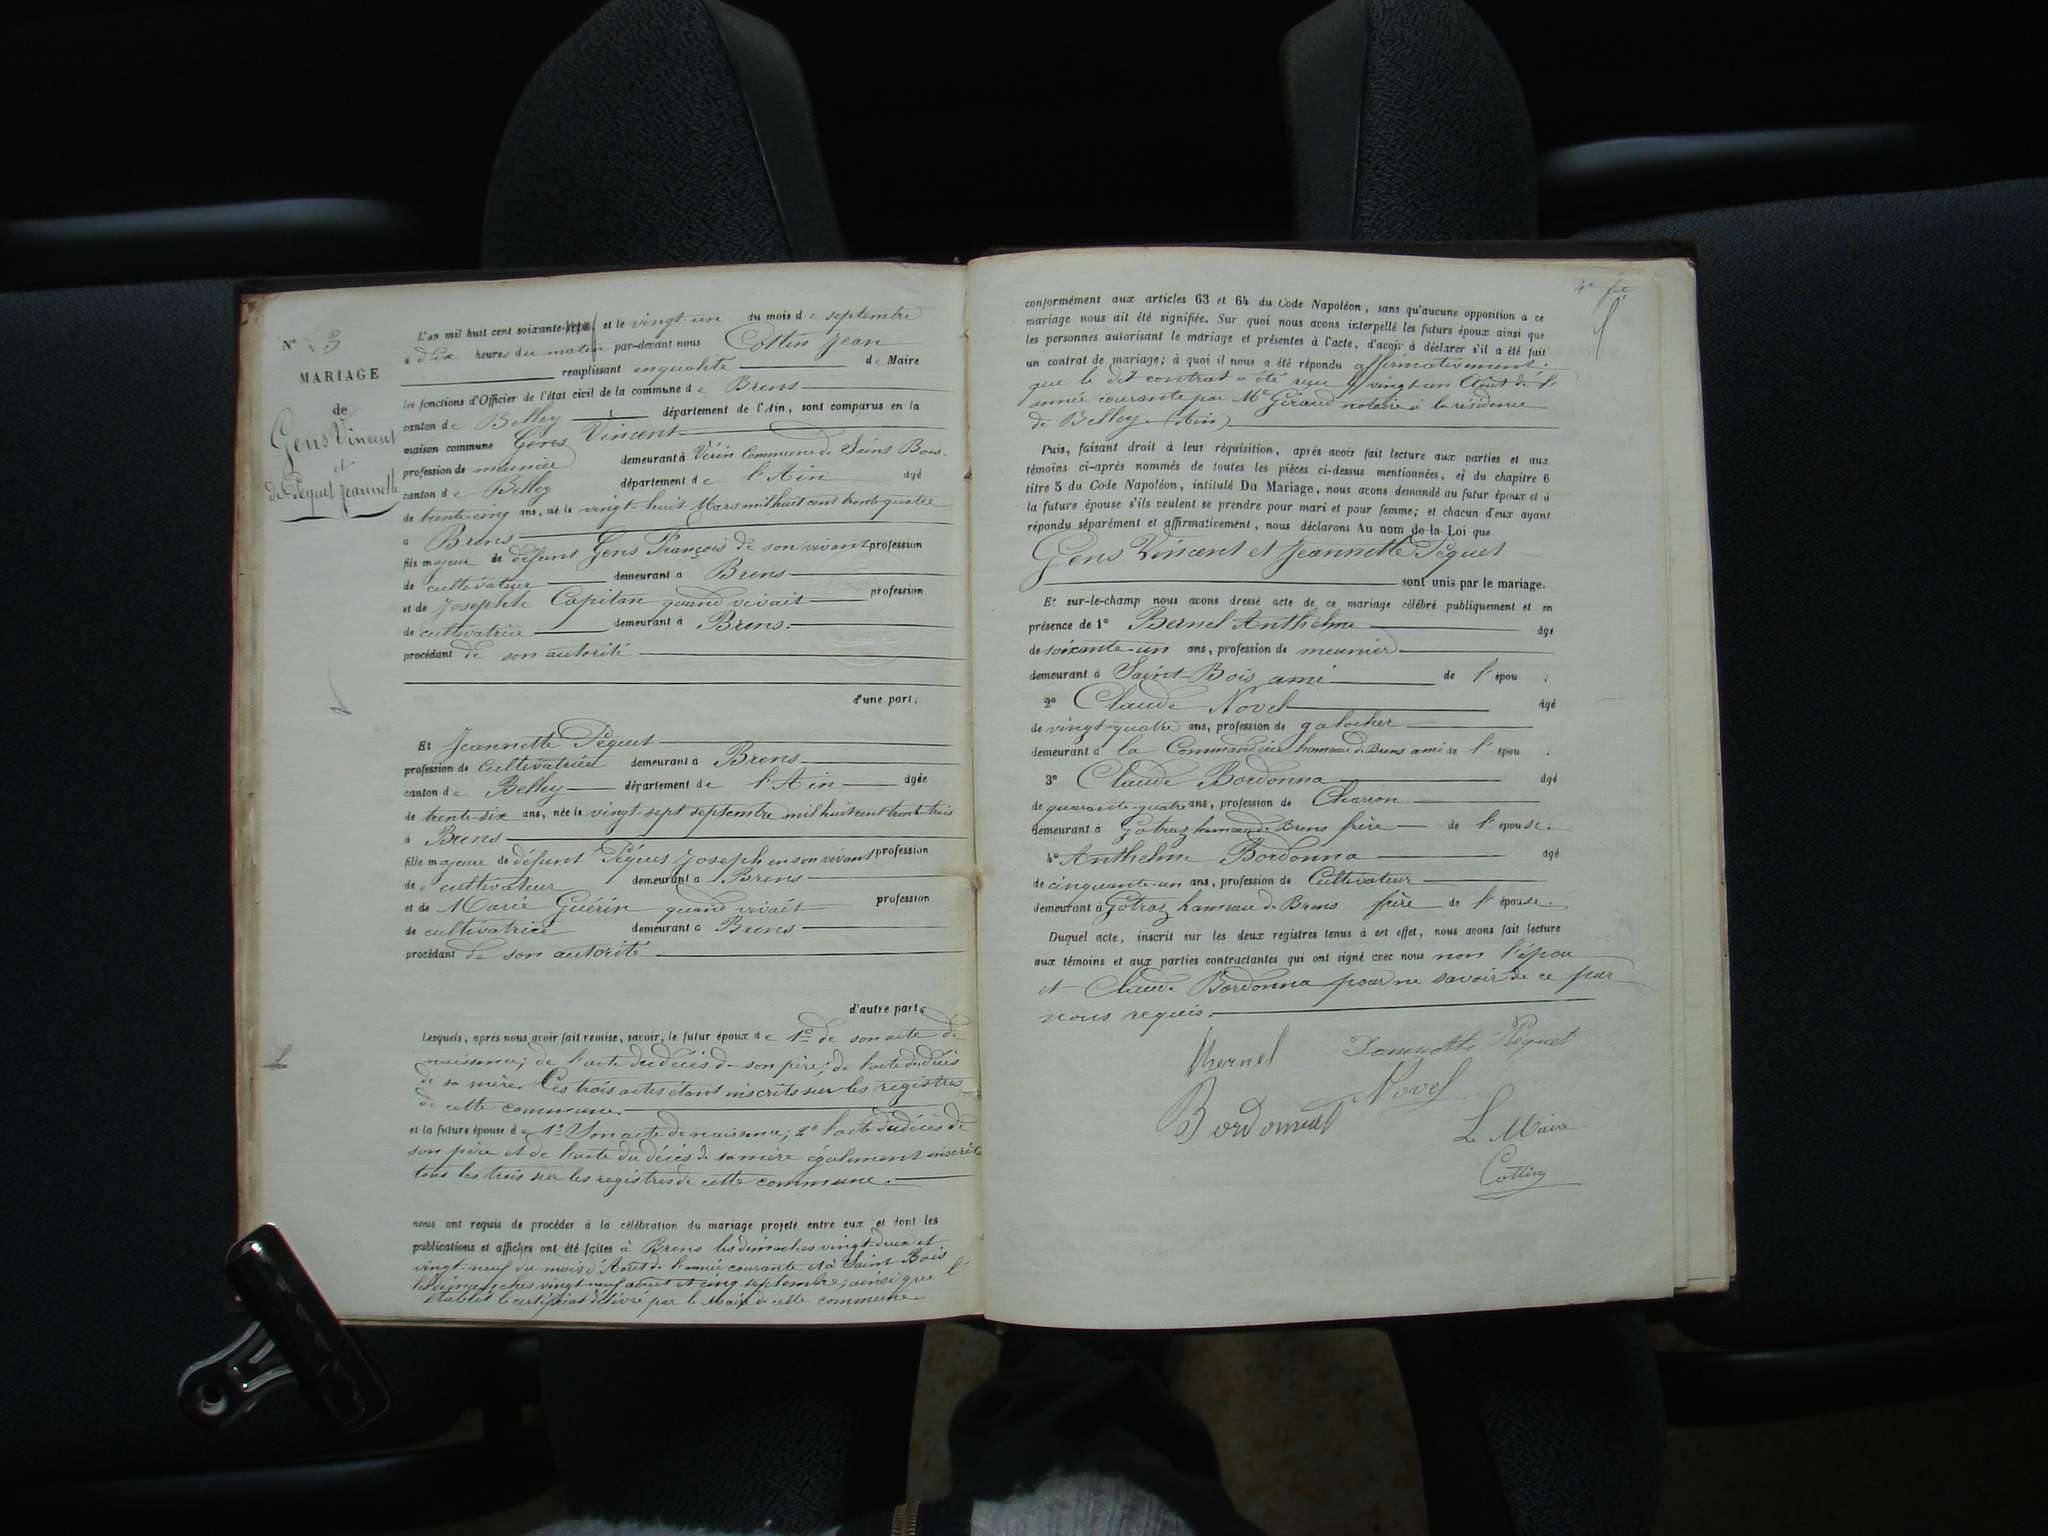 N° 3
MARIAGE
de
Gens Vincent
et
de Péquet Jeannette
L'an mil huit cent soixante- et le vingt-un du mois de septembre
à dix heures du matin par-devant nous Cottin Jean
remplissant en qualité de Maire
les fonctions d'Officier de l'état civil de la commune de Brens
canton de Belley département de l'Ain, sont comparus en la
maison commune Gens Vincent
profession de meunier demeurant à Vérin Commune de Saint Bois.
canton de Belley département de l'Ain âgé
de trente-cinq ans, né le vingt-huit Mars mil huit cent trente-quatre
à Brens
fils majeur de défunt Gens François de son vivant profession
de cultivateur demeurant à Brens
et de Josephte Capitan quand vivait profession
de cultivatrice demeurant à Brens.
procédant de son autorité
d'une part;
Et Jeannette Péquet
profession de cultivatrice demeurant à Brens
canton de Belley département de l'Ain âgée
de trente-six ans, née le vingt-sept septembre mil huit cent trente-trois
à Brens
fille majeure de défunt Péquet Joseph en son vivant profession
de cultivateur demeurant à Brens
et de Marie Guérin quand vivait profession
de cultivatrice demeurant à Brens
procédant de son autorité
d'autre part,
Lesquels, après nous avoir fait remise, savoir, le futur époux de 1° de son acte de
naissance; de l'acte du décès de son père; de l'acte du décès
de sa mère. Ces trois actes étant inscrits sur les registres
de cette commune.
et la future épouse de 1° Son acte de naissance; 2° l'acte du décès de
son père et de l'acte du décès de sa mère également inscrits
tous les trois sur les registres de cette commune.
nous ont requis de procéder à la célébration du mariage projeté entre eux et dont les
publications et affiches ont été faites à Brens les dimanches vingt-deux et
vingt-neuf du mois d'Août de l'année courante et à Saint Bois
les dimanches vingt neuf août et cinq septembre; ainsi que l'
établit le certificat délivré par le Maire de cette commune.
conformément aux articles 63 et 64 du Code Napoléon, sans qu'aucune opposition à ce
mariage nous ait été signifiée. Sur quoi nous avons interpellé les futurs époux ainsi que
les personnes autorisant le mariage et présentes à l'acte, d'avoir à déclarer s'il a été fait
un contrat de mariage; à quoi il nous a été répondu affirmativement.
que le dit contrat a été reçu le vingt un Août de l'
année courante par Me Giraud notaire à la résidence
de Belley (Ain)
Puis, faisant droit à leur réquisition, après avoir fait lecture aux parties et aux
témoins ci-après nommés de toutes les pièces ci-dessus mentionnées, et du chapitre 6
titre 5 du Code Napoléon, intitulé Du Mariage, nous avons demandé au futur époux et à
la future épouse s'ils veulent se prendre pour mari et pour femme; et chacun d'eux ayant
répondu séparément et affirmativement, nous déclarons Au nom de la Loi que
Gens Vincent et Jeannette Péquet
sont unis par le mariage.
Et sur-le-champ nous avons dressé acte de ce mariage célébré publiquement et en
présence de 1° Bernel Anthelme âgé
de soixante-un ans, profession de meunier
demeurant à Saint-Bois ami de l'épou ;
2° Claude Novel âgé
de vingt-quatre ans, profession de galocher
demeurant à la Commanderie hameau de Brens ami de l'épou ;
3° Claude Bordonna âgé
de quarante-quatre ans, profession de Charon
demeurant à Gotraz hameau de Brens frère de l'épouse;
4° Anthelme Bordonna âgé
de cinquante-un ans, profession de Cultivateur
demeurant à Gotraz hameau de Brens frère de l'épouse.
Duquel acte, inscrit sur les deux registres tenus à cet effet, nous avons fait lecture
aux témoins et aux parties contractantes qui ont signé avec nous non l'épou
et Claude Bordonna pour ne savoir de ce par
nous requis.
Bernel Jeannette Péquet
Novel
Bordonnat
Le Maire
Cottin